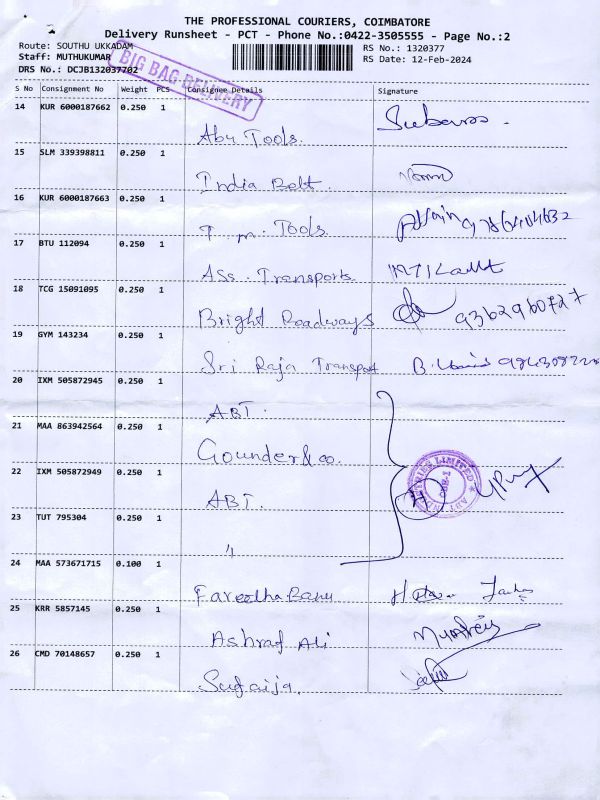 THE PROFESSIONAL COURIERS, COIMBATORE
Delivery Runsheet - PCT - Phone No.:0422-3505555 - Page No.:2
Route: SOUTHU UKKADAM RS No.: 1320377
Staff: MUTHUKUMAR RS Date: 12-Feb-2024
DRS No.: DCJB132037702
BIG BAG DELIVERY
S No Consignment No Weight PCS Consignee Details Signature
14 KUR 6000187662 0.250 1
Abu Tools.
15 SLM 339398811 0.250 1
India Belt.
16 KUR 6000187663 0.250 1
T. m. Tools
17 BTU 112094 0.250 1
Ass. Transports
18 TCG 15091095 0.250 1
Bright Roadways 9362960727
19 GYM 143234 0.250 1
Sri Raja Transport
20 IXM 505872945 0.250 1
ABT.
21 MAA 863942564 0.250 1
Gounder & co.
22 IXM 505872949 0.250 1
ABT.
23 TUT 795304 0.250 1
"
24 MAA 573671715 0.100 1
Fareetha Banu
25 KRR 5857145 0.250 1
Ashraf Ali
26 CMD 70148657 0.250 1